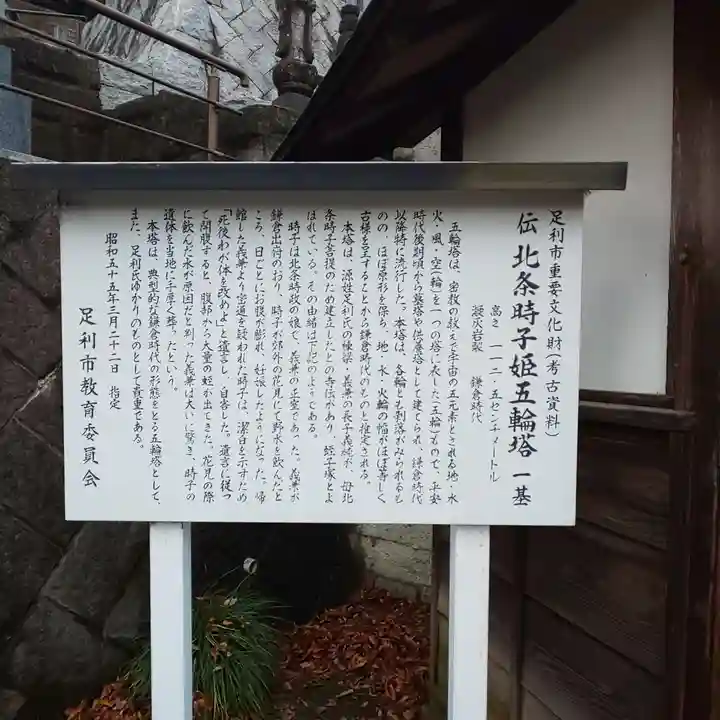 足利市重要文化財(考古資料)
伝 北条時子姫五輪塔 一基
高さ 一一二・五センチメートル
凝灰岩製 鎌倉時代
五輪塔は、密教の教えで宇宙の五元素とされる地・水・
火・風・空(輪)を一つの塔に表した(五輪)もので、平安
時代後期頃から墓塔や供養塔として建てられ、鎌倉時代
以降特に流行した。本塔は、各輪とも剥落がみられるも
のの、ほぼ原形を保ち、地・水・火輪の幅がほぼ等しく
古様を呈することから鎌倉時代のものと推定される。
本塔は、源姓足利氏の棟梁・義兼の長子義純が、母北
条時子菩提のため建立したとの寺伝があり、蛭子塚とよ
ばれている。その由緒は下記のようである。
時子は北条時政の娘で、義兼の正室であった。義兼が
鎌倉出府のおり、時子が郊外の花見にて野水を飲んだと
ころ、日ごとにお腹が膨れ、妊娠したようになった。帰
館した義兼より密通を疑われた時子は、潔白を示すため
「死後わが体を改めよ」と遺言し、自害した。遺言に従っ
て開腹すると、腹部から大量の蛭が出てきた。花見の際
に飲んだ水が原因だと判った義兼は大いに驚き、時子の
遺体を当地に手厚く葬ったという。
本塔は、典型的な鎌倉時代の形態をとる五輪塔として、
また、足利氏ゆかりのものとして貴重である。
昭和五十五年三月二十二日 指定
足利市教育委員会